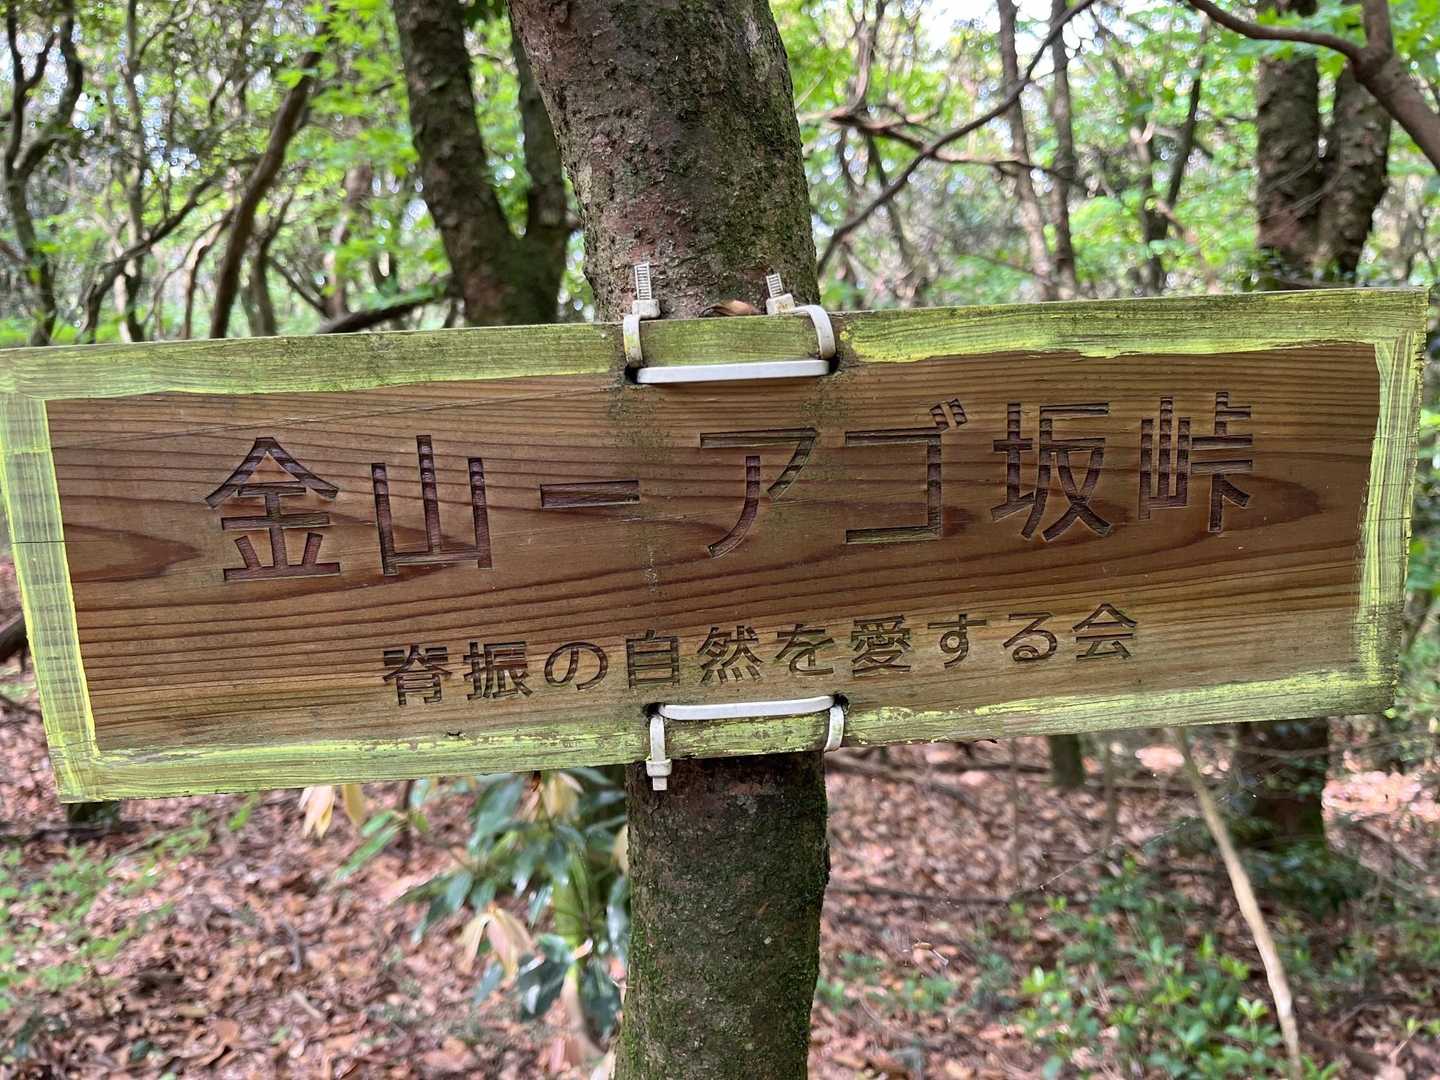 金山－アゴ坂峠
脊振の自然を愛する会